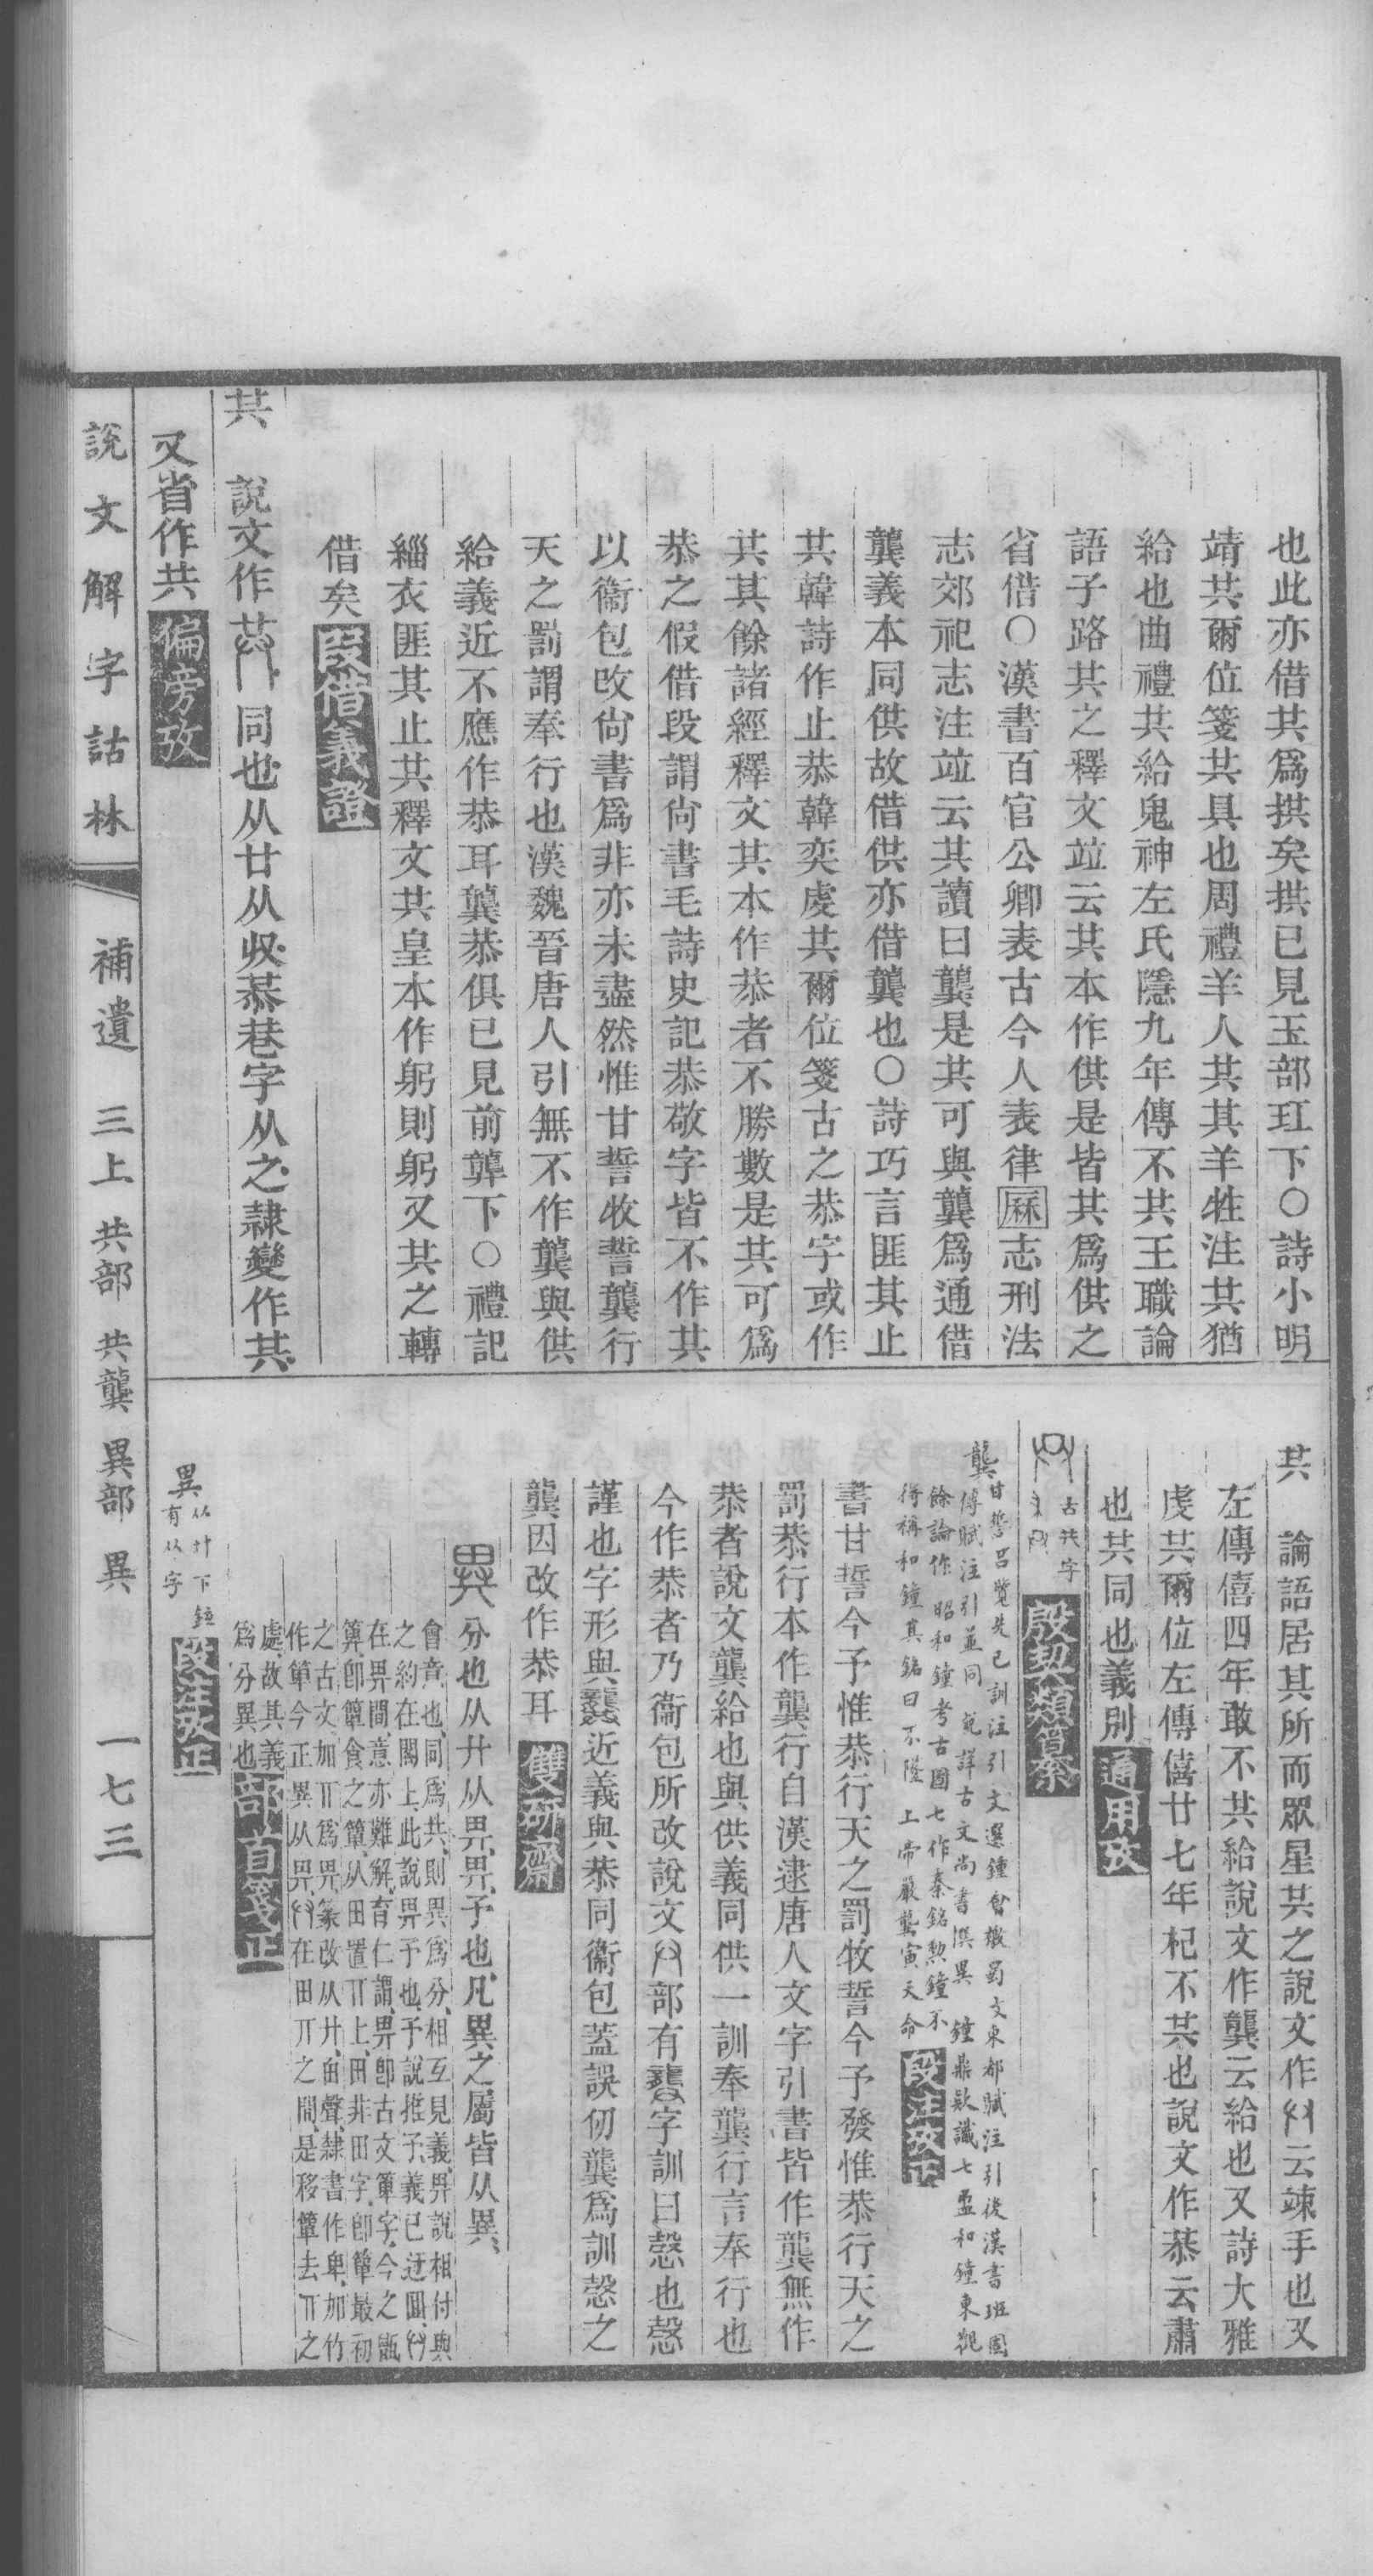 也此亦借共爲拱矣拱已見玉部玒下○詩小明
靖共爾位箋共具也周禮羊人共其羊牲注共猶
給也曲禮共給鬼神左氏隱九年傳不共王職論
語子路共之釋文竝云共本作供是皆共爲供之
省借○漢書百官公卿表古今人表律厤志刑法
志郊祀志注竝云共讀曰龔是共可與龔爲通借
龔義本同供故借供亦借龔也○詩巧言匪其止
共韓詩作止恭韓奕虔共爾位箋古之恭字或作
共其餘諸經釋文共本作恭者不勝數是共可爲
恭之假借段謂尙書毛詩史記恭敬字皆不作共
以衞包改尙書爲非亦未盡然惟甘誓牧誓龔行
天之罰謂奉行也漢魏晉唐人引無不作龔與供
給義近不應作恭耳龔恭俱已見前龏下○禮記
緇衣匪其止共釋文共皇本作躬則躬又共之轉
借矣 叚借義證
共 說文作 同也从廿从収恭巷字从之隸變作共
又省作共 偏旁攷
共 論語居其所而眾星共之說文作 云竦手也又
左傳僖四年敢不共給說文作龔云給也又詩大雅
虔共爾位左傳僖廿七年杞不共也說文作恭云肅
也共同也義別 通用攷
古共字 殷契類纂
龔 甘誓呂覽先已訓注引文選鍾會檄蜀文東都賦注引後漢書班固
傳賦注引並同 說詳古文尚書撰異 鐘鼎款識七盄和鐘東觀
餘論作 昭和鐘考古圖七作秦銘勲鐘不
得稱和鐘其銘曰不隆 上帝嚴龏寅天命 段注攷正
書甘誓今予惟恭行天之罰牧誓今予發惟恭行天之
罰恭行本作龔行自漢逮唐人文字引書皆作龔無作
恭者說文龔給也與供義同供一訓奉龔行言奉行也
今作恭者乃衞包所改說文 部有 字訓曰愨也愨
謹也字形與 近義與恭同衞包蓋誤仞龔爲訓愨之
龔因改作恭耳 雙硏齋
異 分也从廾从畀畀予也凡異之屬皆从異
會意也同爲共則異爲分相互見義畀說相付與
之約在閣上此說畀予也予說推予義已迂圓
在畀間意亦難解育仁謂畀卽古文箄字今之甑
箅卽簞食之簞从田置丌上田非田字卽簞最初
之古文加丌爲畀篆改从廾甶聲隸書作卑加竹
作箄今正異从畀 在田丌之間是移簞去丌之
處故其義
爲分異也 部首箋正
異 从廾下 
有从字 段注攷正
說文解字詁林 補遺 三上 共部 共龔 異部 異 一七三